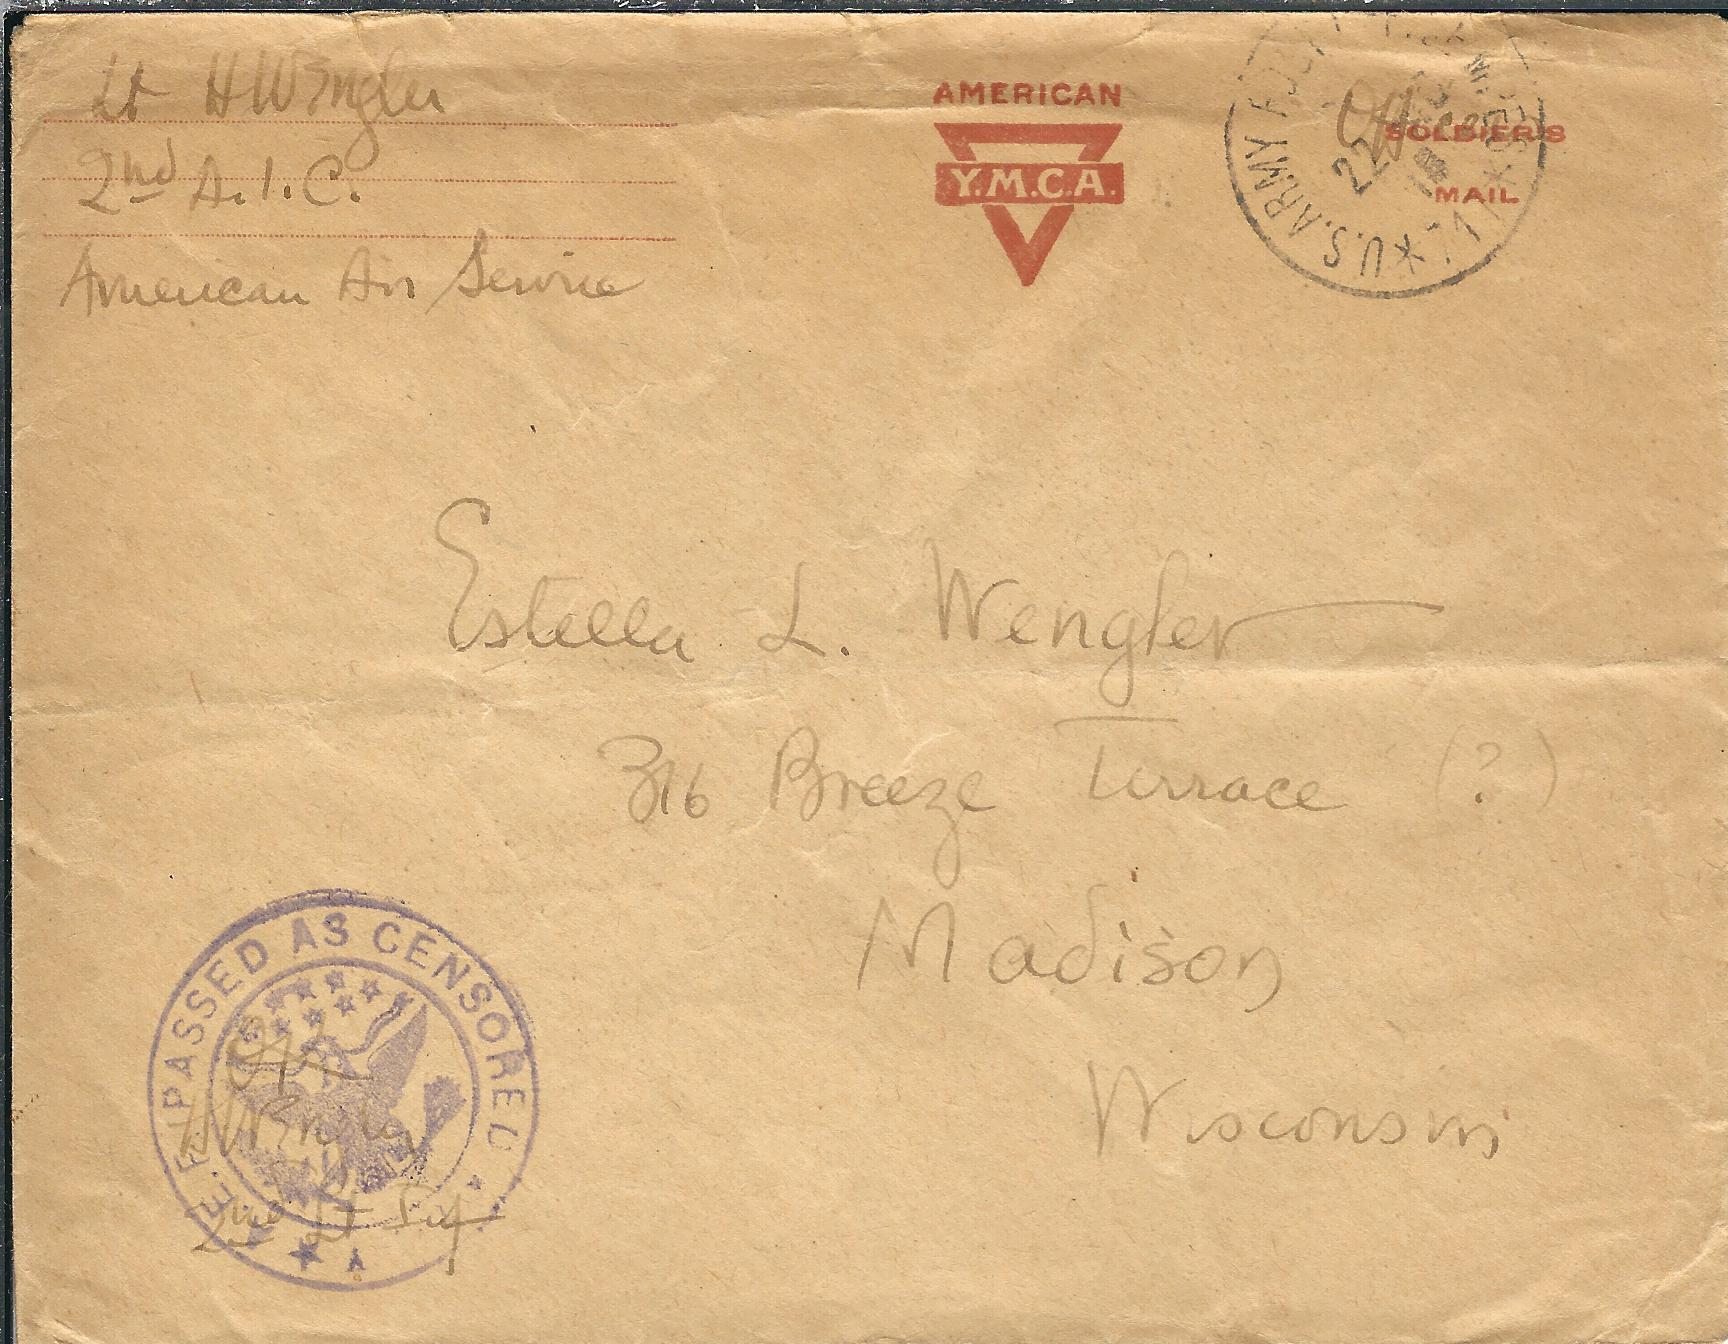 Lt HWEngler
2nd A.I.C.
American Air Service
AMERICAN
Y.M.C.A.
Officer
SOLDIER'S
MAIL
U.S. ARMY POST
22
* 711 *
Estella L. Wengler
316 Breeze Terrace (?)
Madison
Wisconsin
PASSED AS CENSORED
A.E.F.
OK
HWEngler
2nd Lt Inf